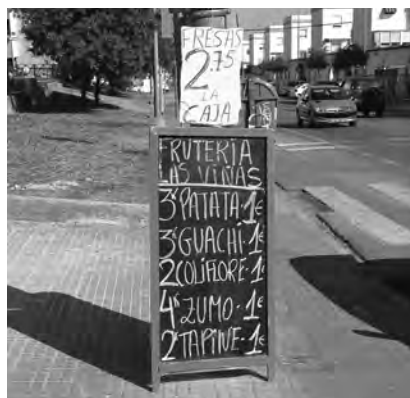 FRESAS
2.75
LA
CAJA
FRUTERIA
LAS VIÑAS
3K PATATA-1€
3K GUACHI-1€
2 COLIFLORE-1€
4K ZUMO-1€
2K TAPINE-1€